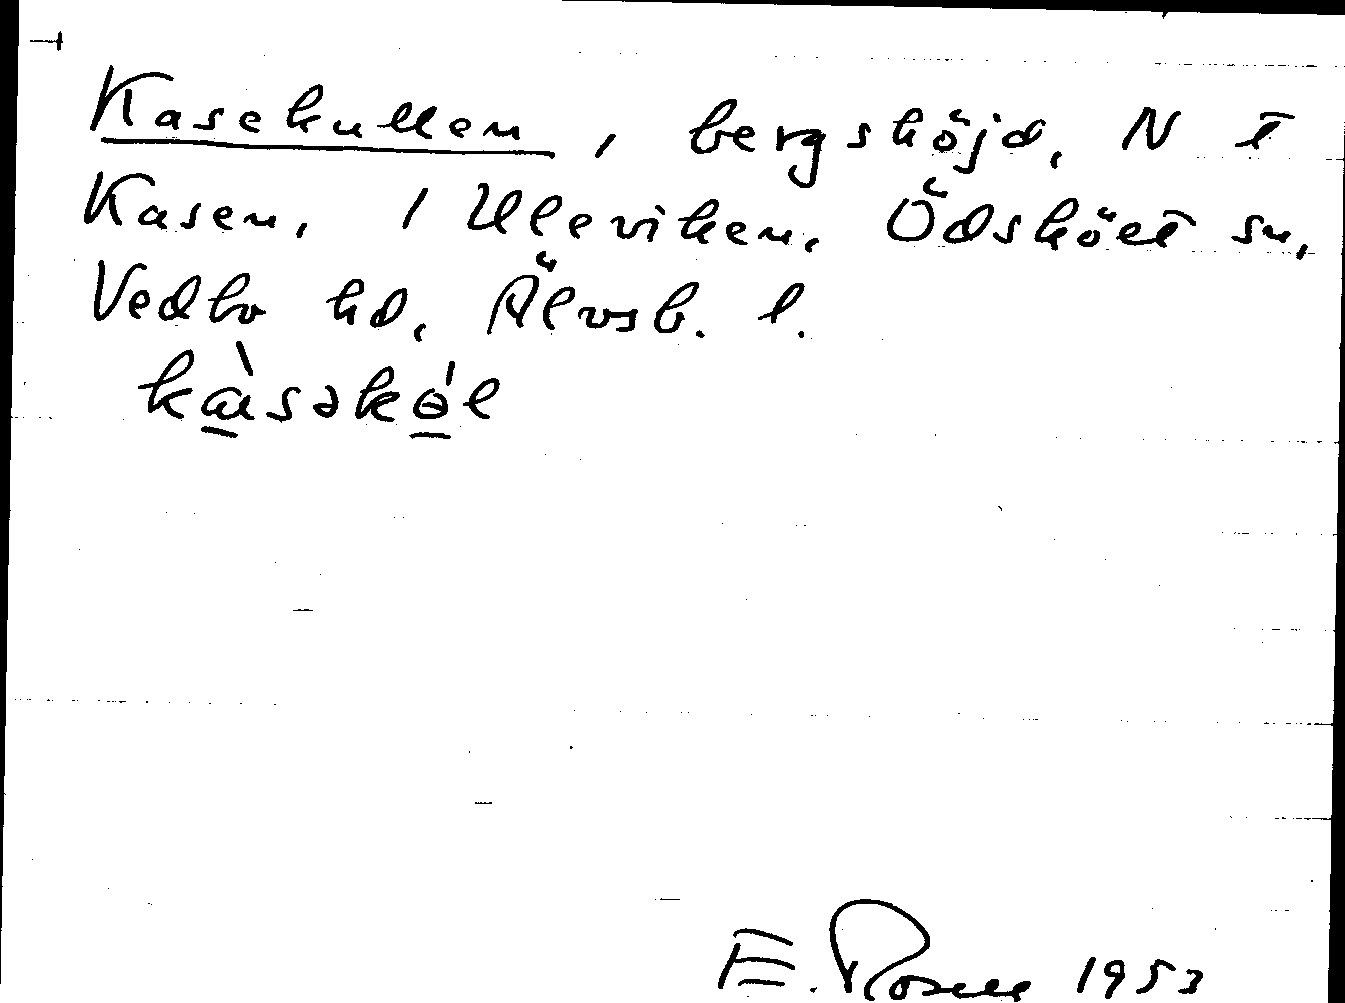 Kasekullen, bergshöjd, N t
Kasen, 1 Uleviken, Ödskölt sn,
Vedbo hd, Älvsb. l.
kɑ̀səkɵ́l
E. Rosell 1953